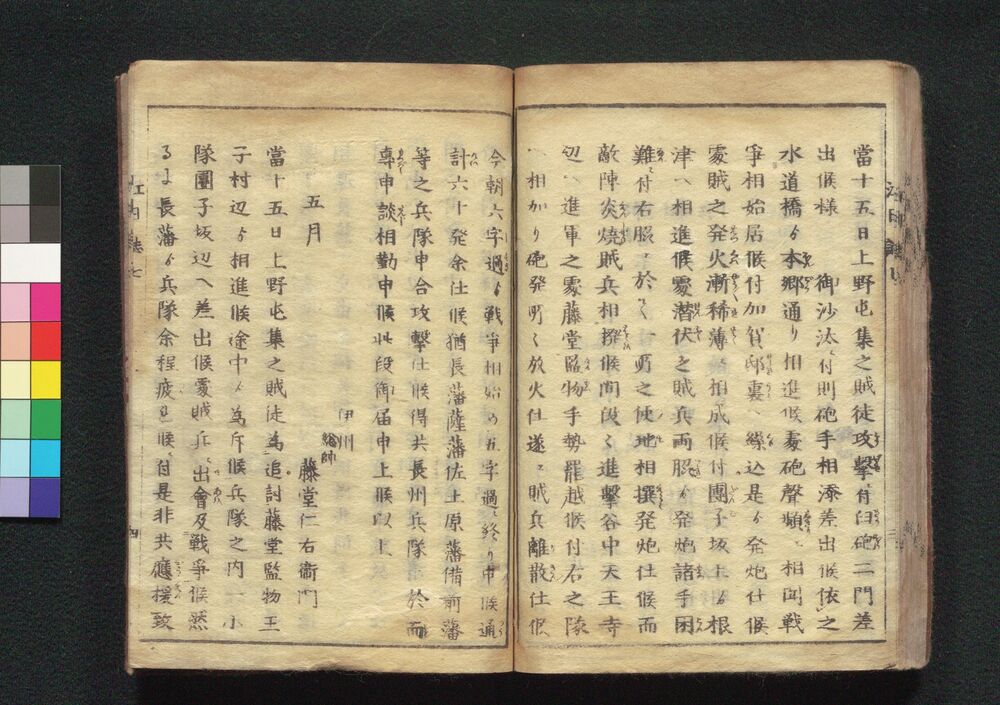 當十五日上野屯集之賊徒攻撃ニ付臼砲二門差
出候様御沙汰ニ付則砲手相添差出候依之
水道橋ゟ本郷通り相進候処砲聲頻ニ相聞戦
争相始居候付加賀邸裏ヘ繰込是ゟ発炮仕候
処賊之発火漸稀薄ニ相成候付團子坂上ゟ根
津ヘ相進候処潜伏之賊兵両服ゟ発炮諸手困
難ニ付右服ニ於て一層之使地相撰発炮仕候而
敵陣炎焼賊兵相撓候間段々進撃谷中天王寺
辺ヘ進軍之処藤堂監物手勢罷越候付右之隊
ヘ相加り砲発所々放火仕遂ニ賊兵離散仕候
今朝六字過ゟ戦争相始め五字過ニ終り申候通
計六十発余仕候猶長藩薩藩佐土原藩備前藩
等之兵隊申合攻撃仕候得共長州兵隊ニ於而
専申談相勤申候此段御届申上候以上
伊州
総帥
五月 藤堂仁右衞門
當十五日上野屯集之賊徒為追討藤堂監物王
子村辺ゟ相進候途中ゟ為斥候兵隊之内一小
隊團子坂辺ヘ差出候処賊兵ニ出會及戦争候然
るに長藩ゟ兵隊余程疲れ候ニ付是非共應援致